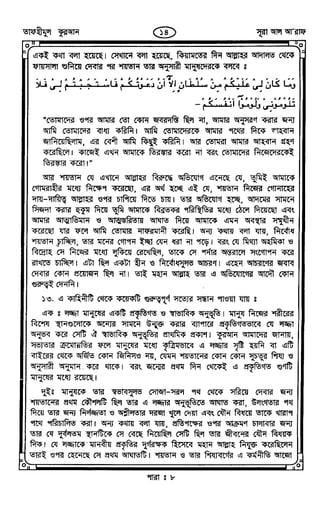 তাফহীমুল কুরআন
১৪
সূরা আল আ'রাফ
একই কথা বলা হয়েছে। সেখানে বলা হয়েছে, কিয়ামতের দিন আল্লাহর আদালত থেকে
ফায়সালা শুনিয়ে দেবার পর শয়তান তার অনুসারী মানুষদেরকে বলবে :
وَمَا كَانَ لِيَ عَلَيْكُمْ مِّنْ سُلْطَانٍ إِلَّا أَنْ دَعَوْتُكُمْ فَاسْتَجَبْتُمْ لِي فَلَا
تَلُومُونِي وَلُومُوا أَنْفُسَكُمْ -
"তোমাদের ওপর আমার তো কোন জবরদস্তি ছিল না, আমার অনুসরণ করার জন্য
আমি তোমাদের বাধ্য করিনি। আমি তোমাদেরকে আমার পথের দিকে আহবান
জানিয়েছিলাম, এর বেশী আমি কিছুই করিনি। আর তোমরা আমার আহবান গ্রহণ
করেছিলে। কাজেই এখন আমাকে তিরস্কার করো না বরং তোমাদের নিজেদেরকেই
তিরস্কার করো।"
আর শয়তান যে এখানে আল্লাহর বিরুদ্ধে অভিযোগ এনেছে যে, তুমিই আমাকে
গোমরাহীর মধ্যে নিক্ষেপ করেছো, এর অর্থ হচ্ছে এই যে, শয়তান নিজের গোনাহের
দায়-দায়িত্ব আল্লাহর ওপর চাপিয়ে দিতে চায়। তার অভিযোগ হচ্ছে, আদমের সামনে
সিজদা করার হুকুম দিয়ে তুমি আমাকে বিব্রতকর পরিস্থিতির মধ্যে ঠেলে দিয়েছো এবং
আমার আত্মাভিমান ও আত্মম্ভরিতায় আঘাত দিয়ে আমাকে এমন অবস্থার সম্মুখীন
করেছো যার ফলে আমি তোমার নাফরমানী করেছি। অন্য কথায় বলা যায়, নির্বোধ
শয়তান চাচ্ছিল, তার মনের গোপন ইচ্ছা যেন ধরা না পড়ে। বরং যে মিথ্যা অহমিকা ও
বিদ্রোহ সে নিজের মধ্যে লুকিয়ে রেখেছিল, তাকে সে পর্দার অন্তরালে সংগোপন করে
রাখতে চাচ্ছিল। এটা ছিল একটা হীন ও নির্বোধসুলভ আচরণ। এহেন আচরণের জবাব
দেবার কোন প্রয়োজন ছিল না। তাই মহান আল্লাহ তার এ অভিযোগের আদৌ কোন
গুরুত্বই দেননি।
১৩. এ কাহিনীটি থেকে কয়েকটি গুরুত্বপূর্ণ সত্যের সন্ধান পাওয়া যায় :
এক : লজ্জা মানুষের একটি প্রকৃতিগত ও স্বাভাবিক অনুভূতি। মানুষ নিজের শরীরের
বিশেষ স্থানগুলোকে অন্যের সামনে উন্মুক্ত করার ব্যাপারে প্রকৃতিগতভাবে যে লজ্জা
অনুভব করে সেটি ঐ স্বাভাবিক অনুভূতির প্রাথমিক প্রকাশ। কুরআন আমাদের জানায়,
সভ্যতার ক্রমোন্নতির ফলে মানুষের মধ্যে কৃত্রিমভাবে এ লজ্জার সৃষ্টি হয়নি বা এটি
বাইরের থেকে অর্জিত কোন জিনিসও নয়, যেমন শয়তানের কোন কোন সুচতুর শিষ্য ও
অনুসারী অনুমান করে থাকে। বরং জন্মের প্রথম দিন থেকেই এ প্রকৃতিগত গুণটি
মানুষের মধ্যে রয়েছে।
দুই: মানুষকে তার স্বভাবসুলভ সোজা-সরল পথ থেকে সরিয়ে দেবার জন্য
শয়তানের প্রথম কৌশলটি ছিল তার এ লজ্জার অনুভূতিতে আঘাত করা, উলংগতার পথ
দিয়ে তার জন্য নির্লজ্জতা ও অশ্লীলতার দরজা খুলে দেয়া এবং যৌন বিষয়ে তাকে খারাপ
পথে পরিচালিত করা। অন্য কথায় বলা যায়, প্রতিপক্ষের ওপর আক্রমণ চালাবার জন্য
তার যে দুর্বলতম স্থানটিকে সে বেছে নিয়েছিল সেটি ছিল তার জীবনের যৌন বিষয়ক
দিক। যে লজ্জাকে মানবীয় প্রকৃতির দুর্গরক্ষক হিসেবে মহান আল্লাহ নিযুক্ত করেছিলেন
তারই ওপর হেনেছে সে প্রথম আঘাতটি। শয়তান ও তার শিষ্যবর্গের এ কর্মনীতি আজো
পারা : ৮